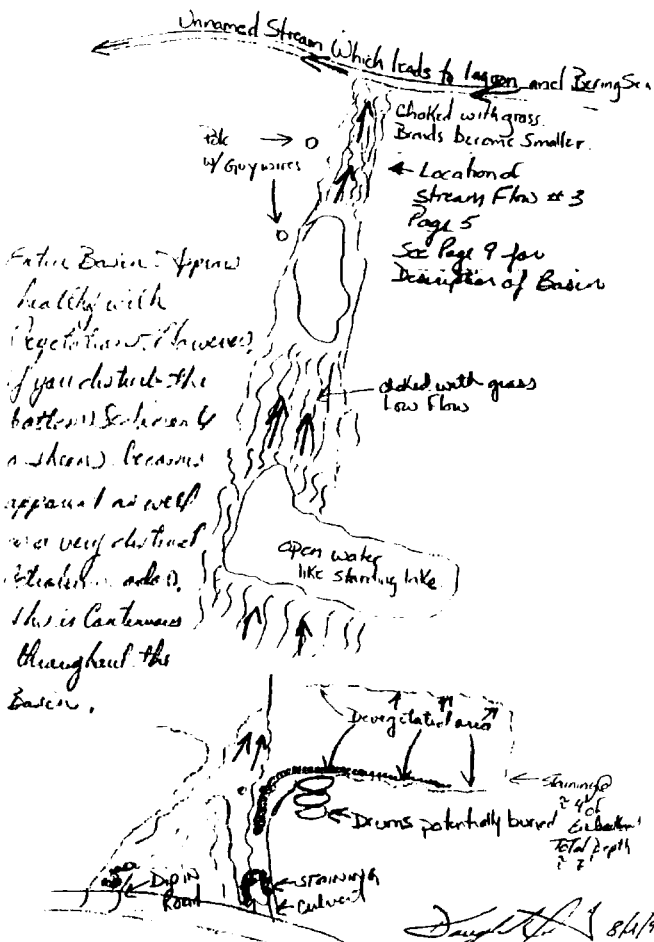 Unnamed Stream Which leads to lagoon and Bering Sea
Choked with grass.
Braids become Smaller.
Pole
w/ Guy wires
Location of
Stream Flow # 3
Page 5
See Page 9 for
Description of Basin
Entire Basin - Appears
healthy with
Vegetation. However,
if you disturb the
bottom Sediment
a sheen becomes
apparent as well
as a very distinct
odor.
This is Continuous
throughout the
Basin.
choked with grass
Low Flow
open water
like standing lake
Devegetated area
Staining
≈ 4' of
Total Depth
≈ 7'
Drums potentially buried
Dip in
Road
STAINING
Culvert